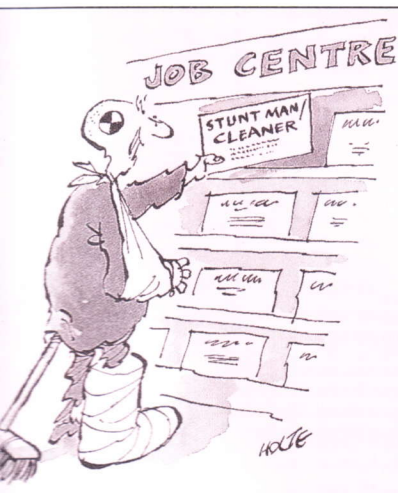 JOB CENTRE
STUNT MAN/
CLEANER
HOLTE